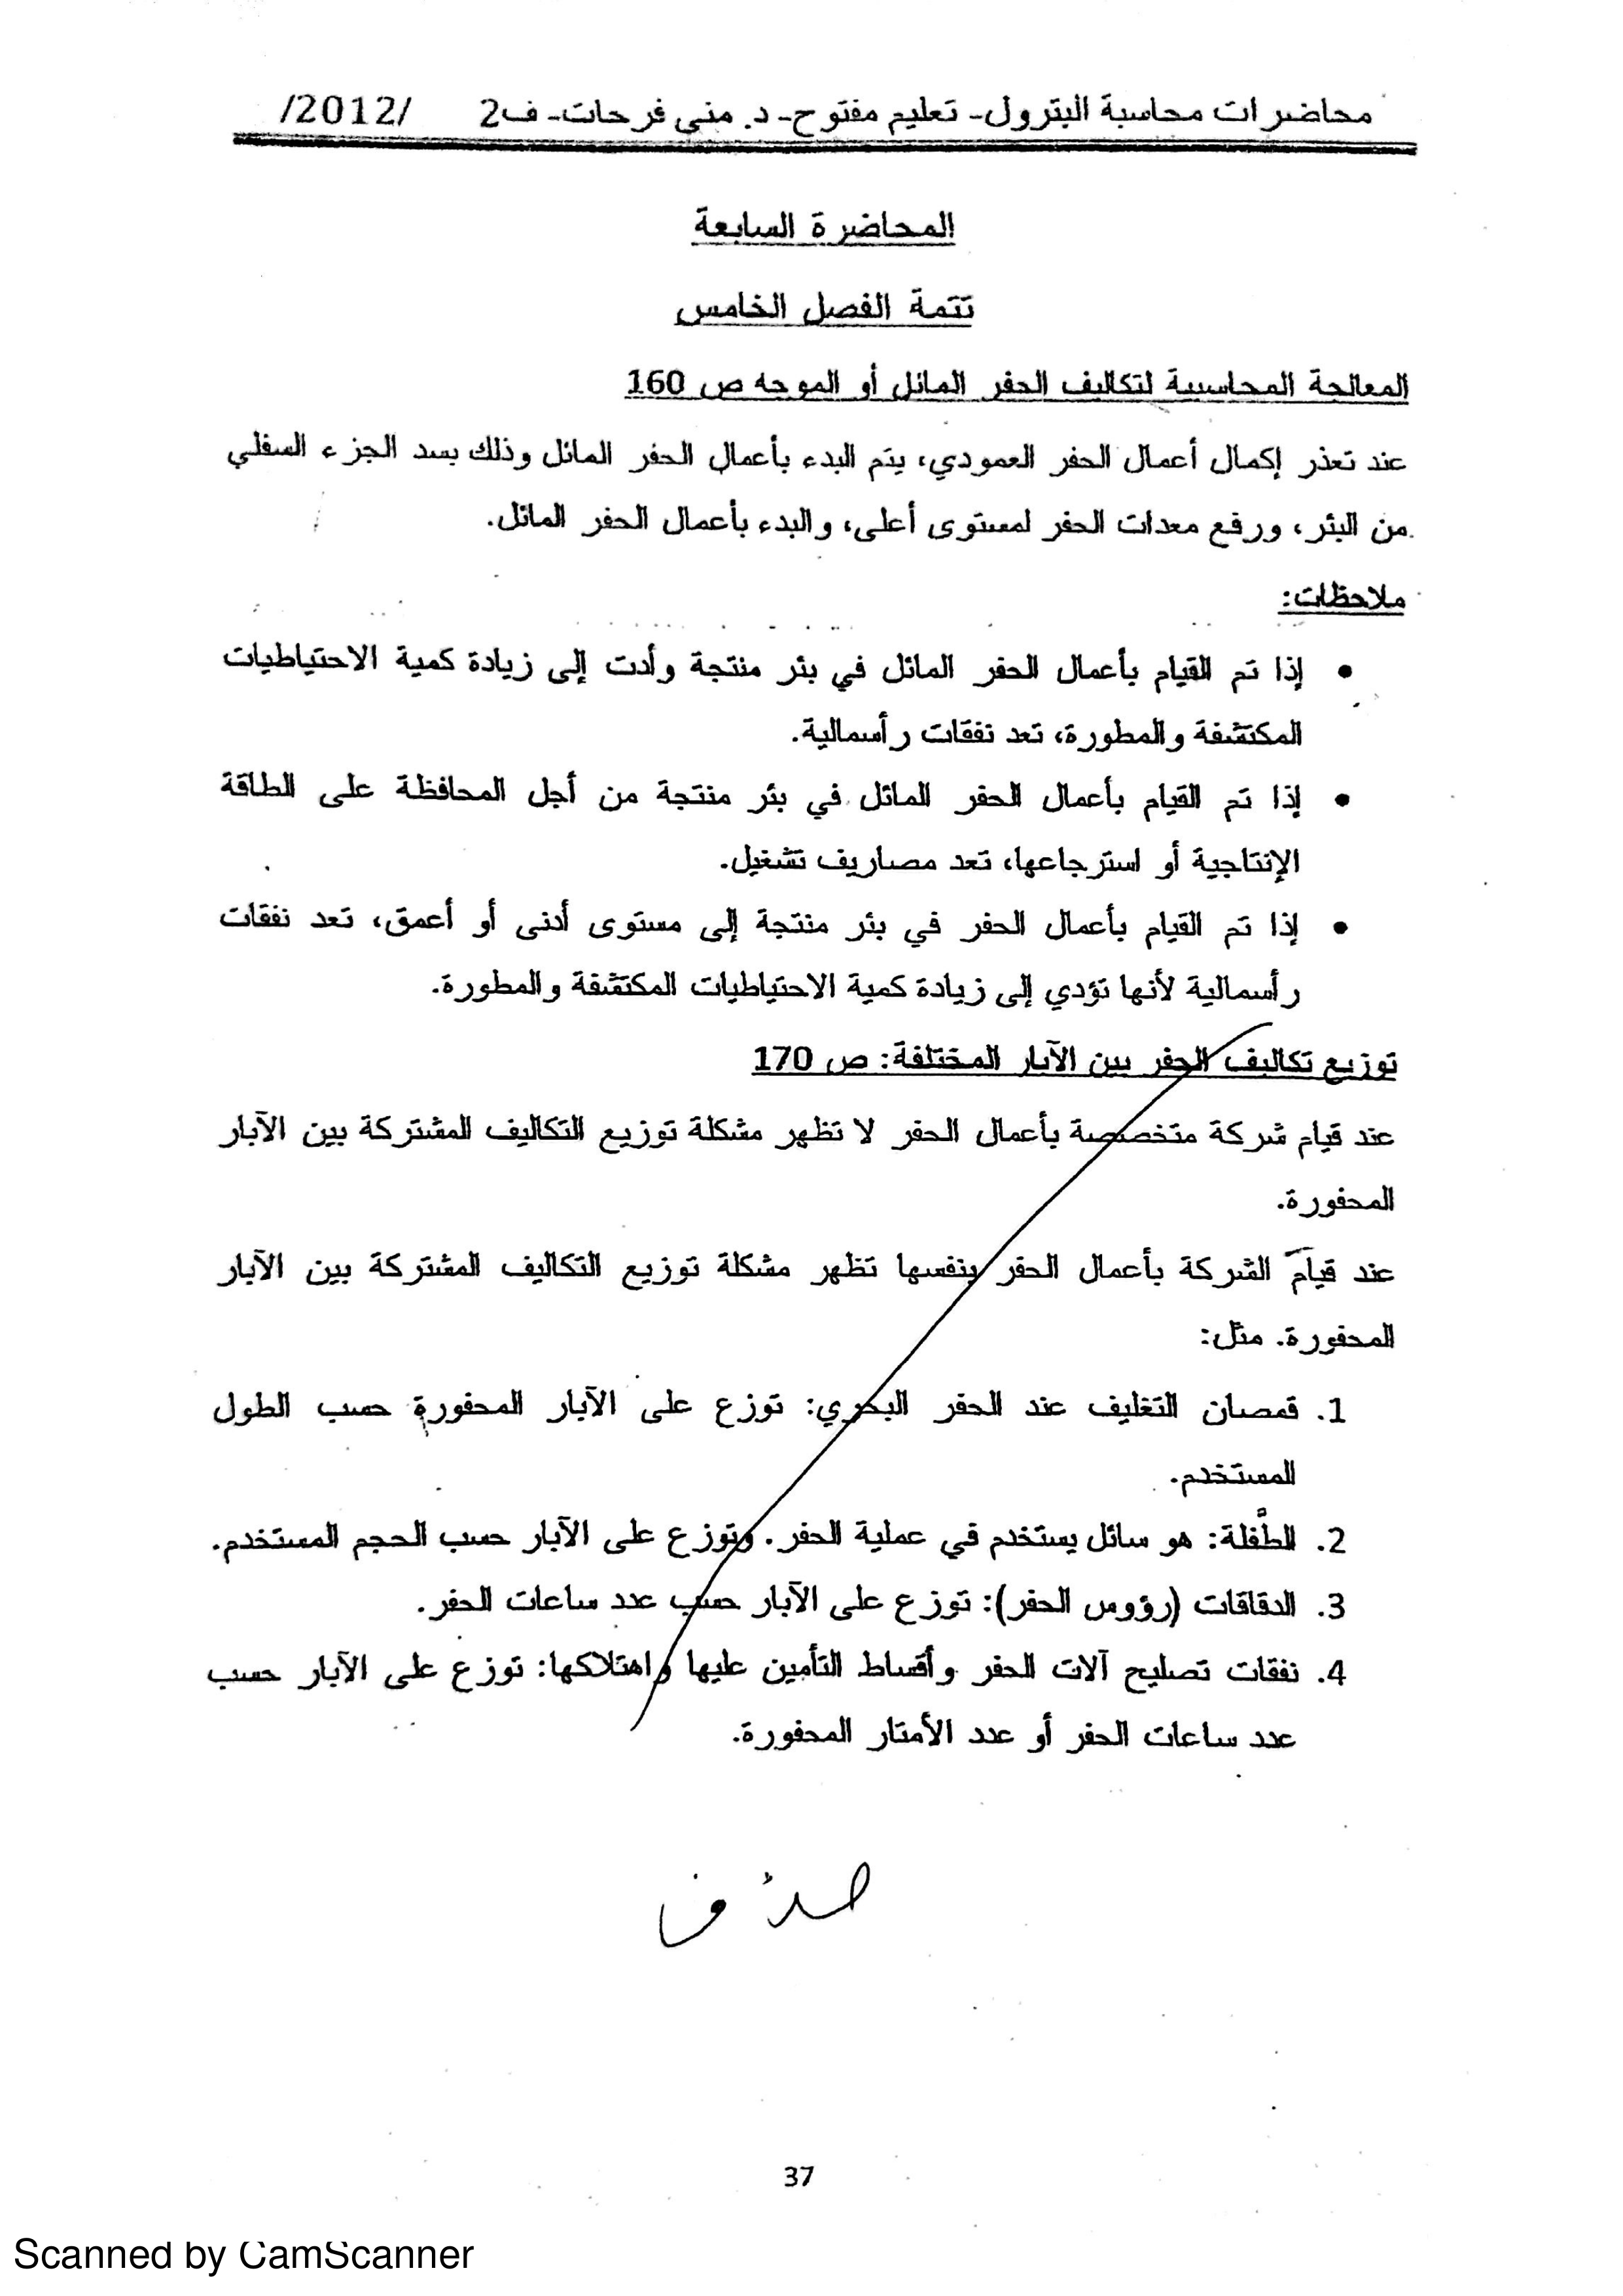 محاضرات محاسبة البترول- تعليم مفتوح- د. منى فرحات- ف2 /2012/
المحاضرة السابعة
تتمة الفصل الخامس
المعالجة المحاسبية لتكاليف الحفر المائل أو الموجه ص 160
عند تعذر إكمال أعمال الحفر العمودي، يتم البدء بأعمال الحفر المائل وذلك بسد الجزء السفلي
من البئر، ورفع معدات الحفر لمستوى أعلى، والبدء بأعمال الحفر المائل.
ملاحظات:
• إذا تم القيام بأعمال الحفر المائل في بئر منتجة وأدت إلى زيادة كمية الاحتياطيات
المكتشفة والمطورة، تعد نفقات رأسمالية.
• إذا تم القيام بأعمال الحفر المائل في بئر منتجة من أجل المحافظة على الطاقة
الإنتاجية أو استرجاعها، تعد مصاريف تشغيل.
• إذا تم القيام بأعمال الحفر في بئر منتجة إلى مستوى أدنى أو أعمق، تعد نفقات
رأسمالية لأنها تؤدي إلى زيادة كمية الاحتياطيات المكتشفة والمطورة.
توزيع تكاليف الحفر بين الآبار المختلفة: ص 170
عند قيام شركة متخصصة بأعمال الحفر لا تظهر مشكلة توزيع التكاليف المشتركة بين الآبار
المحفورة.
عند قيام الشركة بأعمال الحفر بنفسها تظهر مشكلة توزيع التكاليف المشتركة بين الآبار
المحفورة. مثل:
1. قمصان التغليف عند الحفر البحري: توزع على الآبار المحفورة حسب الطول
المستخدم.
2. الطَّفلة: هو سائل يستخدم في عملية الحفر. وتوزع على الآبار حسب الحجم المستخدم.
3. الدقاقات (رؤوس الحفر): توزع على الآبار حسب عدد ساعات الحفر.
4. نفقات تصليح آلات الحفر وأقساط التأمين عليها واهتلاكها: توزع على الآبار حسب
عدد ساعات الحفر أو عدد الأمتار المحفورة.
37
Scanned by CamScanner